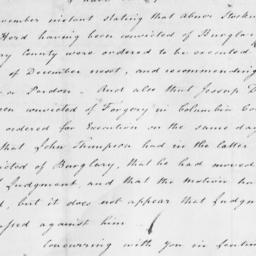 November instant stating that Abner
Hord having been convicted of Burglary
County were ordered to be executed
of December next, and recommending
Pardon - And also that Joseph
convicted of Forgery in Columbia
ordered for Execution on the same day
that John Thompson had in the latter
of Burglary, that he had moved
Judgment, and that the motion had
but it does not appear that Judgm
against him
Concurring with you in